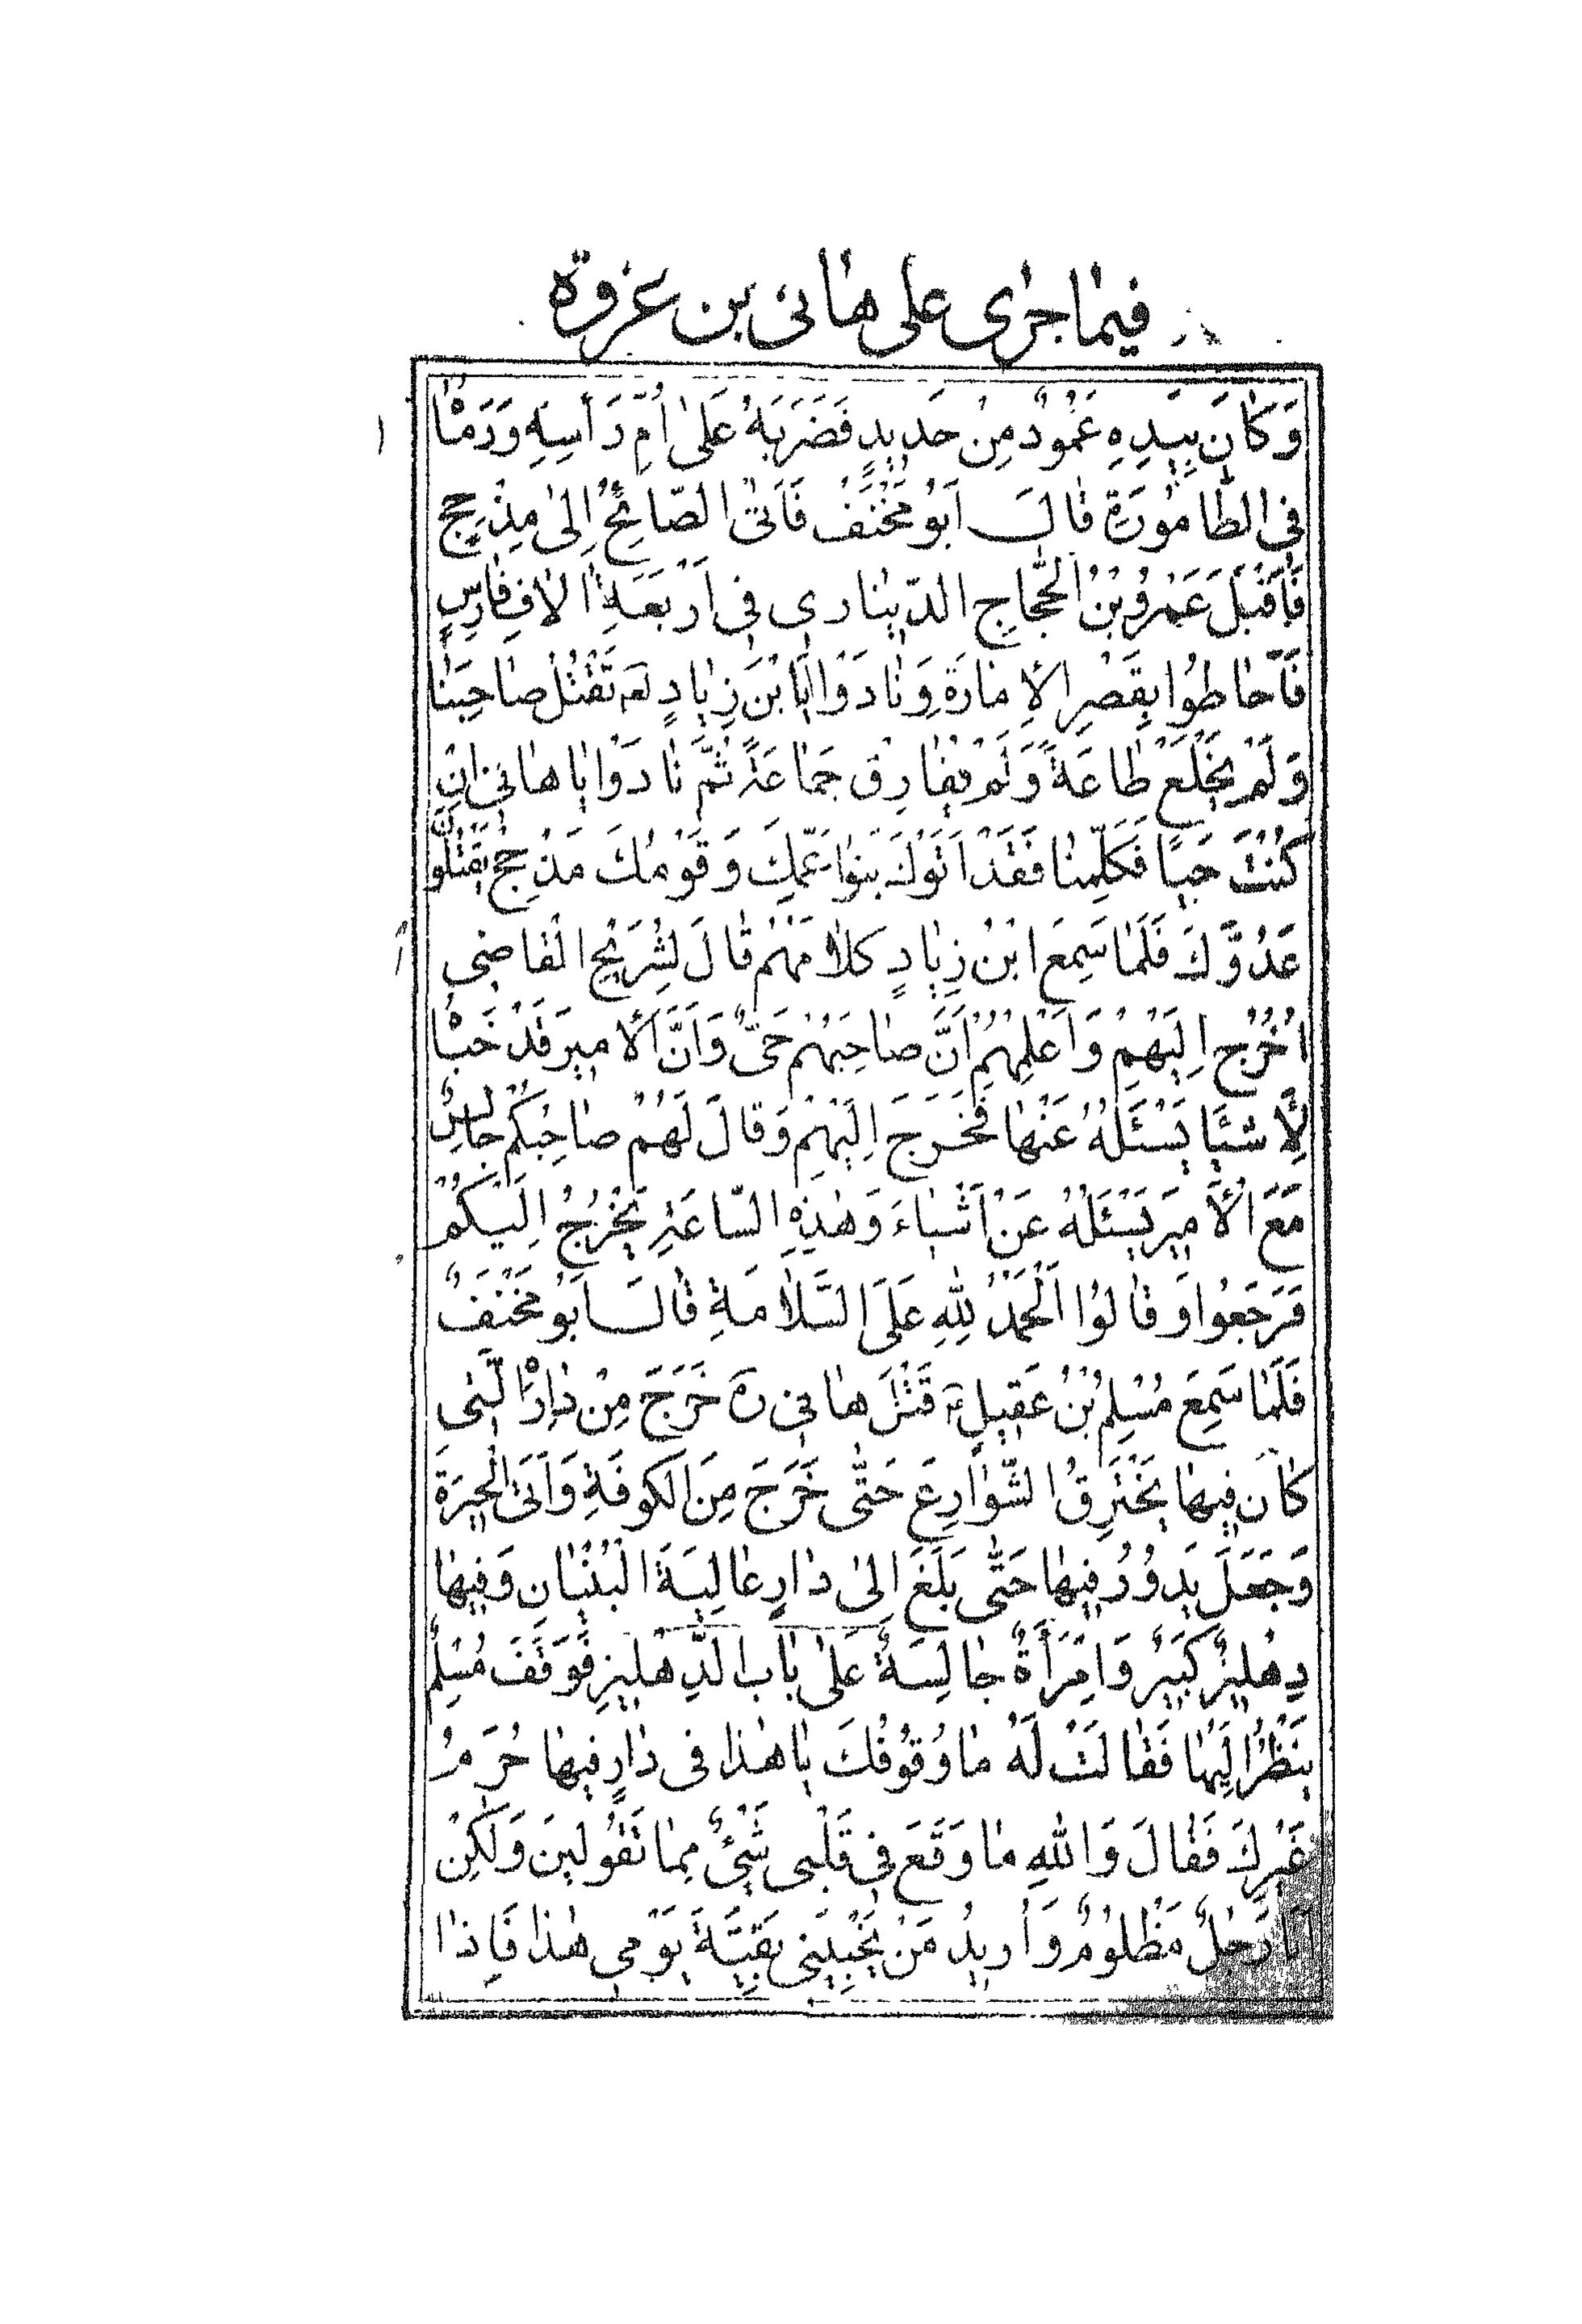 فيما جرى على هانى بن عروة
وَكَانَ بِيَدِهِ عَمُودٌ مِنْ حَدِيدٍ فَضَرَبَهُ عَلَىٰ اُمِّ رَأسِهِ وَرَمَاهُ
فِى الطَّامُورَةِ قَالَ اَبُو مِخْنَفٌ فَاَتَىٰ الصَّائِحُ اِلىٰ مِذْحِجٍ
فَاَقْبَلَ عَمْرُو بْنُ الحَجَّاجِ الدّينارى فِى اَرْبَعَةِ الافِ فَارِسٍ
فَاَحاطُوا بِقَصْرِ الأِمارَةِ وَنادَوْا يَا بْنَ زِيادٍ لِمَ تَقْتُلُ صاحِبَنا
وَلَمْ يَخْلَعْ طاعَةً وَلَمْ يُفارِقْ جَماعَةً ثُمَّ نادَوْا يا هانِى اِنْ
كُنْتَ حَيًا فَكَلِّمْنا فَقَدْ اَتَوْكَ بَنُوا عَمِّكَ وَقَوْمُكَ مَذْحِجُ يَقْتُلُونَ
عَدُوَّكَ فَلَمّا سَمِعَ ابْنُ زِيادٍ كَلامَهُمْ قالَ لِشُرَيْحِ الْقاضِى
اُخْرُجْ اِلَيْهِمْ وَاَعْلِمْهُمْ اَنَّ صاحِبَهُمْ حَىٌّ وَاَنَّ الأَميرَ قَدْ خَبَاهُ
لِأَشْيَا يَسْئَلُهُ عَنْها فَخَرَجَ اِلَيْهِمْ وَقالَ لَهُمْ صاحِبُكُمْ جالِسٌ
مَعَ الأَميرِ يَسْئَلُهُ عَنْ اَشْياءَ وَهٰذِهِ السّاعَةِ يَخْرُجُ اِلَيْكُمْ
فَرَجَعُوا وَقالُوا اَلْحَمْدُ لِلّهِ عَلَى السَّلامَةِ قالَ اَبُو مِخْنَفٌ
فَلَمّا سَمِعَ مُسْلِمُ بْنُ عَقيلٍ قَتْلَ هانِى ره خَرَجَ مِنْ دارِهِ الَّتى
كانَ فيها يَخْتَرِقُ الشَّوارِعَ حَتّى خَرَجَ مِنَ الكوفَةِ وَاَتَى الْحيرَةَ
وَجَعَلَ يَدوُرُ فيها حَتّى بَلَغَ اِلىٰ دارٍ عالِيَةَ الْبُنْيانِ وَفيها
دِهْليزٌ كَبيرٌ وَامْرَأَةٌ جالِسَةٌ عَلىٰ بابِ الدِّهْليزِ فَوَقَفَ مُسْلِمٌ
يَنْظُرُ اِلَيْها فَقالَتْ لَهُ ما وُقوُفُكَ يا هٰذا فى دارٍ فيها حُرَمُ
غَيْرِكَ فَقالَ وَاللهِ ما وَقَعَ فِى قَلْبى شَىْءٌ مِمّا تَقُولينَ وَلٰكِنْ
اَنَا رَجُلٌ مَظْلوُمٌ وَاُريدُ مَنْ يُخْبِينى بَقِيَّةَ يَوْمى هٰذا فَاِذا